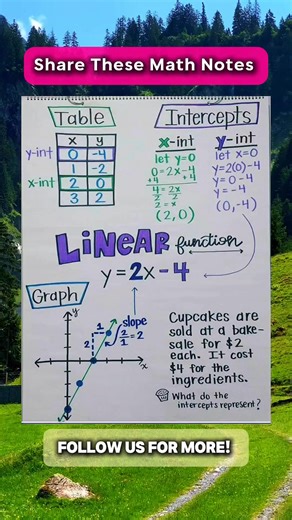 Share These Math Notes
Table
x y
y-int 0 -4
1 -2
x-int 2 0
3 2
Intercepts
x-int
let y=0
0=2x-4
+4 +4
4=2x
2 2
2=x
(2,0)
y-int
let x=0
y=2(0)-4
y=0-4
y=-4
(0,-4)
LiNEAR function
y=2x-4
Graph
y
x
1
2
slope
2/1=2
Cupcakes are
sold at a bake-
sale for $2
each. It cost
$4 for the
ingredients.
What do the
intercepts represent?
FOLLOW US FOR MORE!